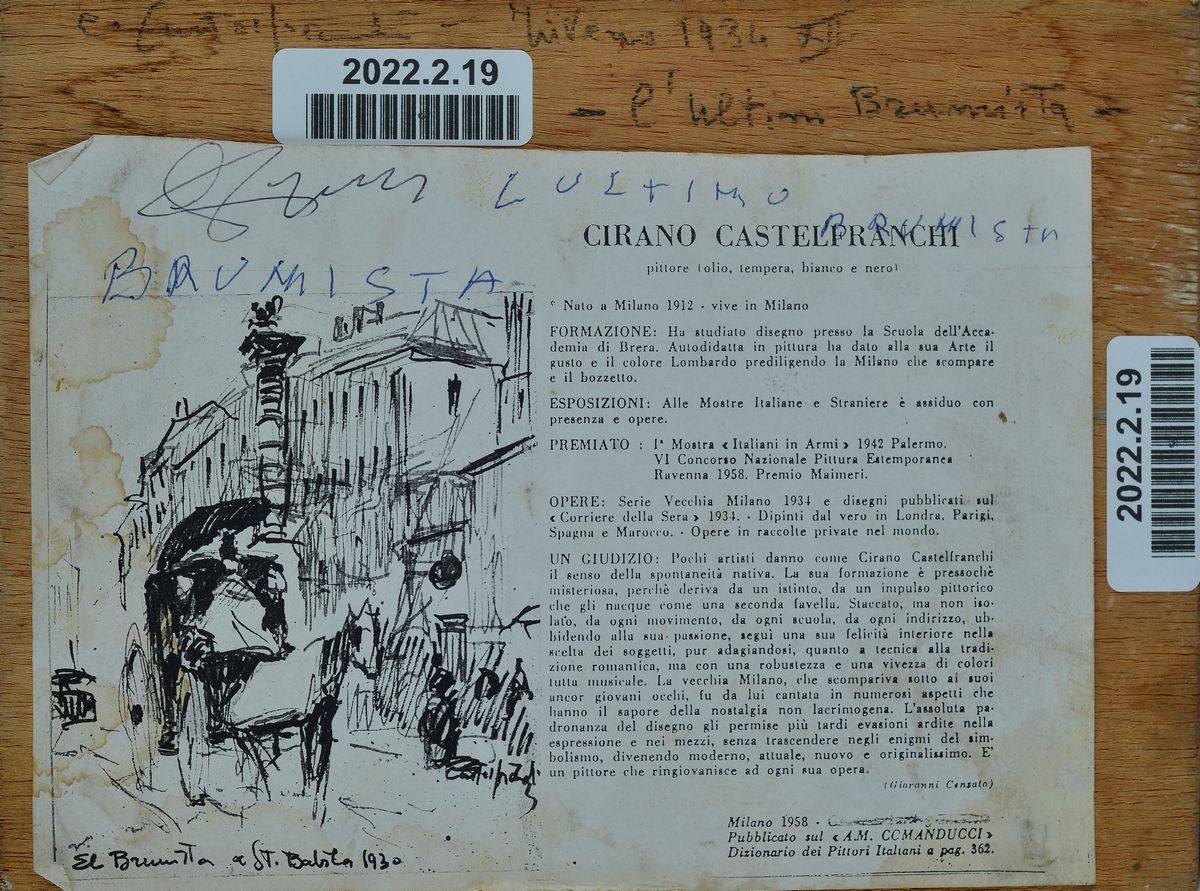 1934 XII
2022.2.19
- l'ultimo Brumista -
L ULTIMO
BRUMISTA
BRUMISTA
CIRANO CASTELFRANCHI
pittore (olio, tempera, bianco e nero)
* Nato a Milano 1912 - vive in Milano
FORMAZIONE: Ha studiato disegno presso la Scuola dell'Acca-
demia di Brera. Autodidatta in pittura ha dato alla sua Arte il
gusto e il colore Lombardo prediligendo la Milano che scompare
e il bozzetto.
ESPOSIZIONI: Alle Mostre Italiane e Straniere è assiduo con
presenza e opere.
PREMIATO : Iª Mostra « Italiani in Armi » 1942 Palermo.
VI Concorso Nazionale Pittura Estemporanea
Ravenna 1958. Premio Maimeri.
OPERE: Serie Vecchia Milano 1934 e disegni pubblicati sul
« Corriere della Sera » 1934. - Dipinti dal vero in Londra, Parigi,
Spagna e Marocco. - Opere in raccolte private nel mondo.
UN GIUDIZIO: Pochi artisti danno come Cirano Castelfranchi
il senso della spontaneità nativa. La sua formazione è pressochè
misteriosa, perchè deriva da un istinto, da un impulso pittorico
che gli nacque come una seconda favella. Staccato, ma non iso-
lato, da ogni movimento, da ogni scuola, da ogni indirizzo, ub-
bidendo alla sua passione, seguì una sua felicità interiore nella
scelta dei soggetti, pur adagiandosi, quanto a tecnica alla tradi-
zione romantica, ma con una robustezza e una vivezza di colori
tutta musicale. La vecchia Milano, che scompariva sotto ai suoi
ancor giovani occhi, fu da lui cantata in numerosi aspetti che
hanno il sapore della nostalgia non lacrimogena. L'assoluta pa-
dronanza del disegno gli permise più tardi evasioni ardite nella
espressione e nei mezzi, senza trascendere negli enigmi del sim-
bolismo, divenendo moderno, attuale, nuovo e originalissimo. E'
un pittore che ringiovanisce ad ogni sua opera.
(Giovanni Censato)
Milano 1958 -
Pubblicato sul « A.M. COMANDUCCI »
Dizionario dei Pittori Italiani a pag. 362.
El Brumista a St. Babila 1930
2022.2.19